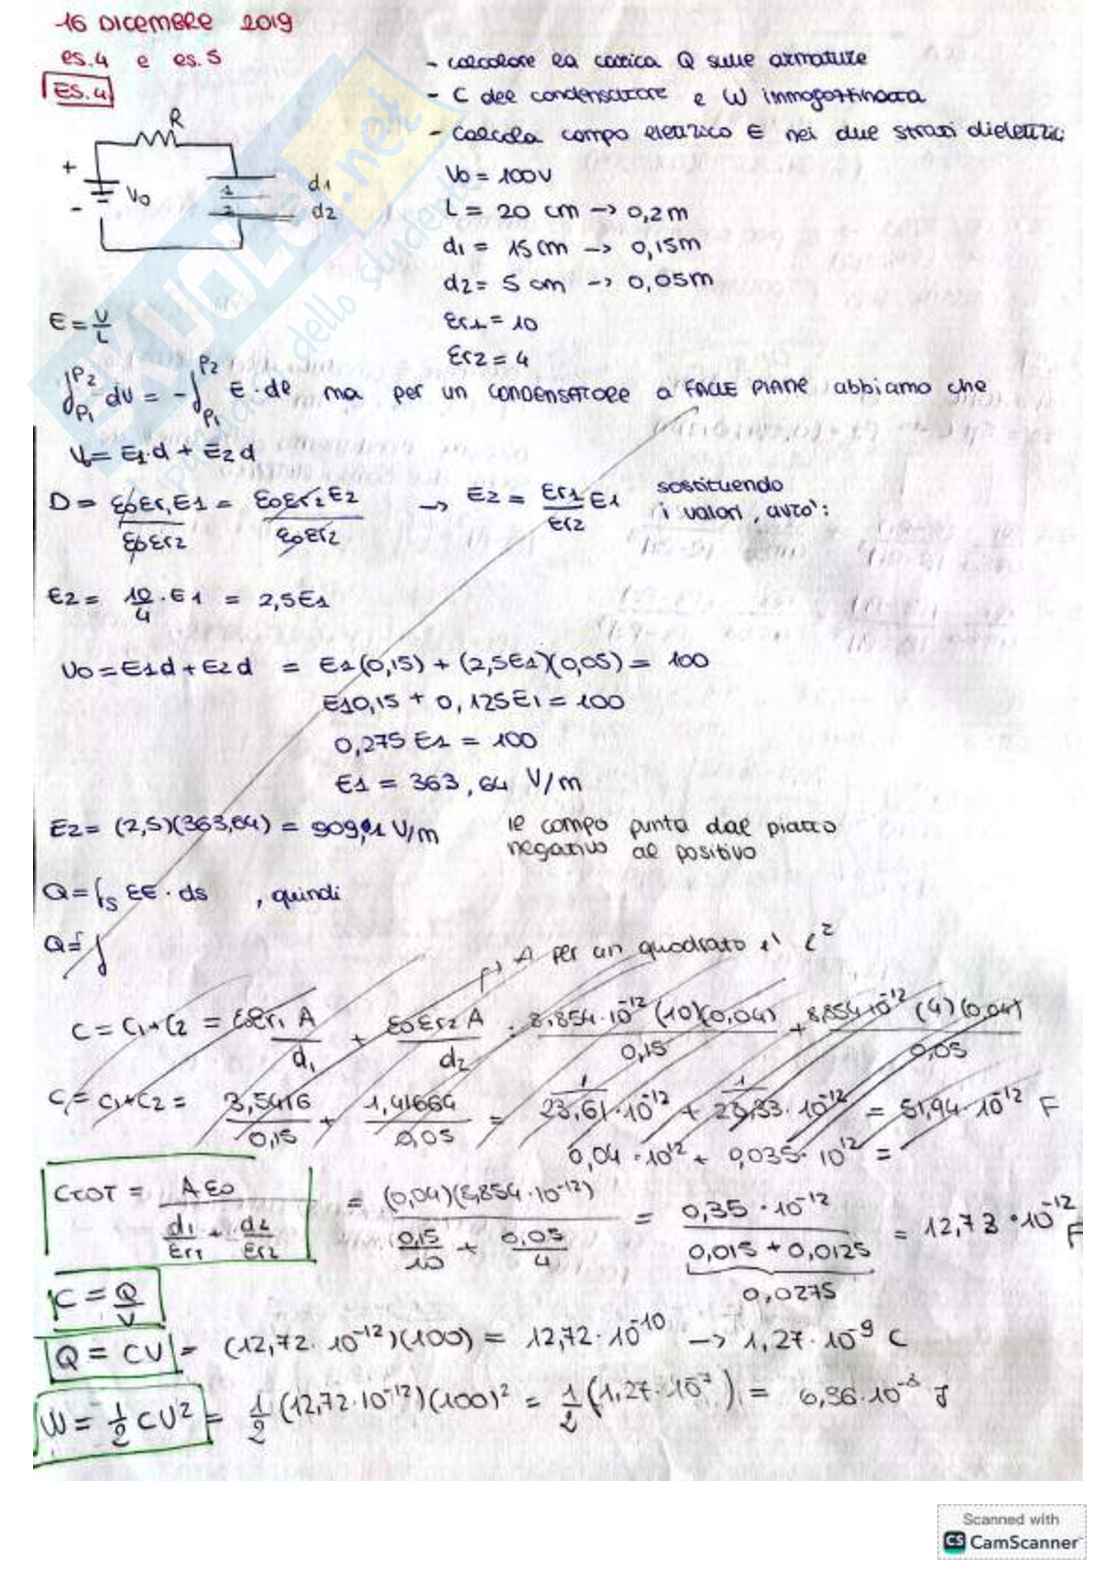 16 DICEMBRE 2019
es.4 e es.5
ES.4
- calcolare la carica Q sulle armature
- C del condensatore e W immagazzinata
- Calcola campo elettrico E nei due strati dielettrici
R
+
-
V₀
1
2
d1
d2
V₀ = 100V
L = 20 cm → 0,2m
d1 = 15cm → 0,15m
d2 = 5 cm → 0,05m
Er1 = 10
Er2 = 4
E = V/L
∫P1^P2 dV = -∫P1^P2 E · dl ma per un CONDENSATORE a FACCE PIANE abbiamo che
V₀ = E1·d + E2 d
D = ε₀εr1E1/ε₀εr2 = ε₀εr2E2/ε₀εr2 → E2 = εr1/εr2 E1 sostituendo
i valori, avrò:
E2 = 10/4 · E1 = 2,5E1
V₀ = E1d + E2d = E1(0,15) + (2,5E1)(0,05) = 100
E1 0,15 + 0,125E1 = 100
0,275 E1 = 100
E1 = 363,64 V/m
E2 = (2,5)(363,64) = 909,1 V/m il campo punta dal piatto
negativo al positivo
Q = ∫s εE · ds , quindi
Q = ∫
→ A per un quadrato è L²
C = C1+C2 = ε₀εr1 A/d1 + ε₀εr2 A/d2 = 8,854·10⁻¹² (10)(0,04)/0,15 + 8,854·10⁻¹² (4)(0,04)/0,05
C = C1+C2 = 3,5416/0,15 + 1,41664/0,05 = 1/23,61·10⁻¹² + 1/·10⁻¹² = 51,94·10⁻¹² F
0,04·10¹² + 0,035·10¹² =
CTOT = A ε₀/(d1/εr1 + d2/εr2) = (0,04)(8,854·10⁻¹²)/(0,15/10 + 0,05/4) = 0,35·10⁻¹²/(0,015 + 0,0125) = 12,73·10⁻¹² F
0,0275
C = Q/V
Q = CV = (12,72·10⁻¹²)(100) = 12,72·10⁻¹⁰ → 1,27·10⁻⁹ C
W = 1/2 CV² = 1/2 (12,72·10⁻¹²)(100)² = 1/2 (1,27·10⁻⁷) = 6,36·10⁻⁸ J
Scanned with
CS CamScanner